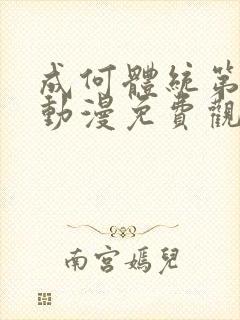 成何體統第
動漫免費觀
南宮嫣兒